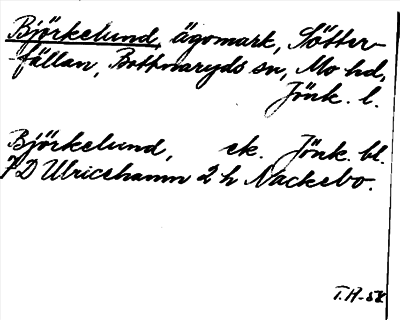 Björkelund, ägomark, Sötter-
fällan, Bottnaryds sn, Mo hd,
Jönk. l.
Björkelund, ek. Jönk. bl.
7D Ulricehamn 2 h Nackebo.
T.H-58